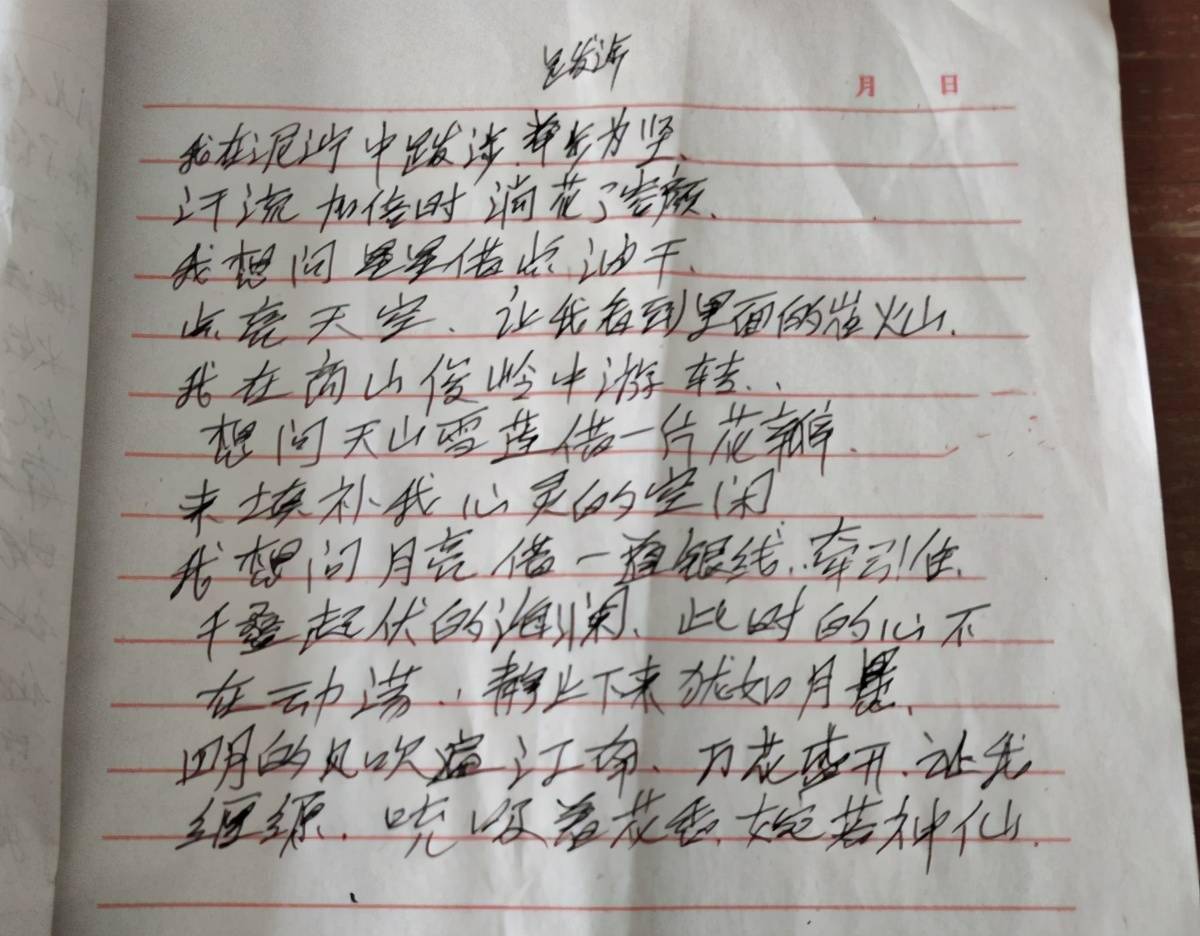 月 日
我在泥泞中跋涉、举步为坚、
汗流加倍时淌花了容颜、
我想问星星借点油干、
点亮天空、让我看到里面的岩火山、
我在高山俊岭中游转、、
想问天山雪莲借一片花瓣、
来填补我心灵的空闲
我想问月亮借一道银线、牵引住、
千叠起伏的海澜、此时的心不
在动荡、静止下来犹如月悬、
四月的风吹遍江南、万花盛开、让我
缠绵、吮吸着花香、婉若神仙、